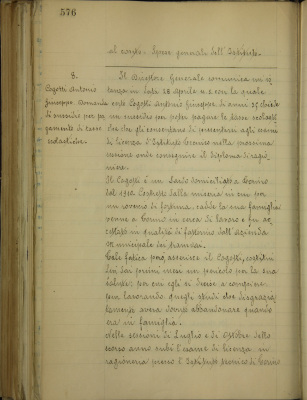 576
al corso. Spese generali dell'Istituto.
8.
Cagetti Antonio
Giuseppe. Domanda
di sussidio per pa-
gamento di tasse
scolastiche.
Il Direttore Generale comunica un'i-
stanza in data 28 aprile u.s. con la quale
certo Cagetti Antonio Giuseppe di anni 27 chiede
un sussidio per poter pagare le tasse scolasti-
che che gli consentano di presentarsi agli esami
di licenza d'Istituto Tecnico nella prossima
sessione onde conseguire il diploma di ragio-
niere.
Il Cagetti è un Sardo domiciliato a Torino
dal 1912. Costretto dalla miseria in cui per
un rovescio di fortuna, cadde la sua famiglia
venne a Torino in cerca di lavoro e fu ac-
cettato in qualità di fattorino dall'azienda
municipale dei tramvai.
Tale fatica però, asserisce il Cagetti, costituì
fin dai primi mesi un pericolo per la sua
salute, per cui egli si decise a compiere,
pur lavorando quegli studi che disgrazia-
tamente aveva dovuto abbandonare quando
era in famiglia.
Nelle sessioni di Luglio e di Ottobre dello
scorso anno subì l'esame di licenza in
ragioneria presso l'Istituto tecnico di Torino